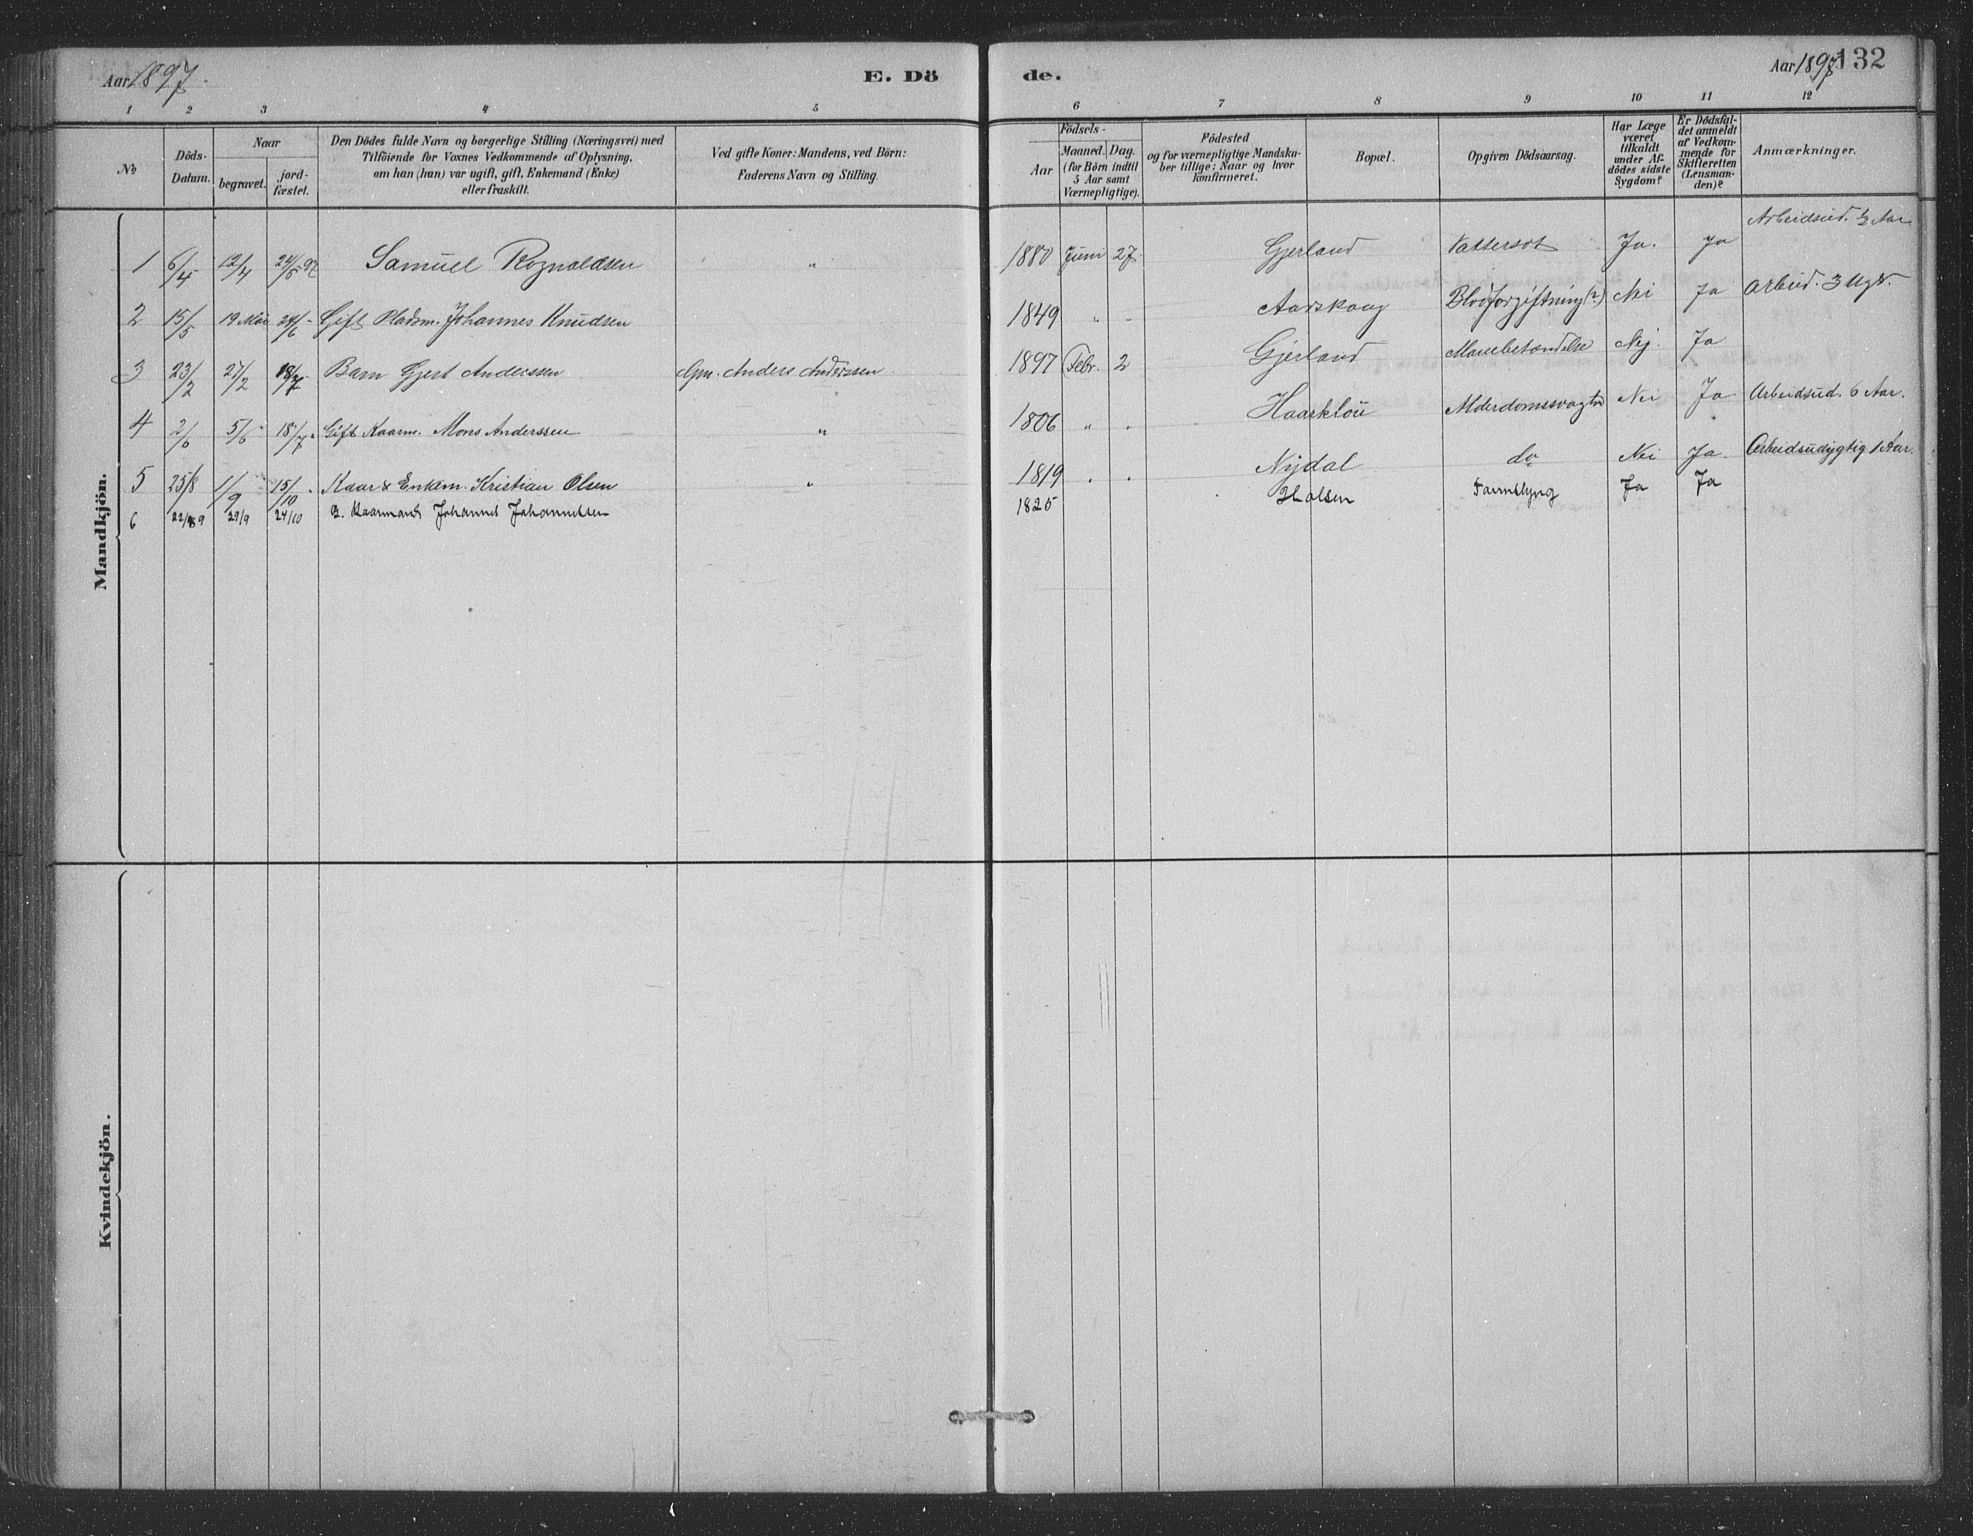 Aar 1897. E. Dö de. Aar 1897 132
1 2 3 4 5 6 7 8 9 10 11 12
No
Döds-Datum.
Naar
begravet.
jord-fæstet.
Den Dödes fulde Navn og borgerlige Stilling (Næringsvei) med
Tilföiende for Voxnes Vedkommende af Oplysning,
om han (hun) var ugift, gift, Enkemand (Enke)
eller fraskilt.
Ved gifte Koner: Mandens, ved Börn:
Faderens Navn og Stilling.
Födsels-
Aar
Maaned. Dag.
(for Börn indtil
5 Aar samt
Værnepligtige).
Födested
og for værnepligtige Mandska-
ber tillige: Naar og hvor
konfirmeret.
Bopæl.
Opgiven Dödsaarsag.
Har Læge
været
tilkaldt
under Af-
dödes sidste
Sygdom?
Er Dödsfal-
det anmeldt
af Vedkom-
mende for
Skifteretten
(Lensman-
den)?
Anmærkninger.
Mandkjön.
1 6/4 12/4 24/6 97 Samuel Rognaldsen " 1880 Juni 27 Gjerland Vattersot Ja. Ja Arbeidsud. 1/2 Aar
2 15/5 19 Mai 24/6 Gift Pladsm. Johannes Knudsen 1849 " " Aarskoog Blodforgiftning (?) Nei Ja Arbeid. 3 Ug
3 23/2 27/2 18/7 Barn Gjert Anderssen Gm. Anders Anderssen 1897 Febr. 2 Gjerland Mavebetændelse Nej. Ja
4 2/6 5/6 18/7 Gift Kaarm. Mons Anderssen " 1806 " " Haarklou Alderdomssvaghed Nei Ja Arbeidsud. 6 Aar.
5 25/8 1/9 15/10 Kaar & Enkem. Kristian Olsen " 1819 " " Nydal do Nei Ja. Arbeidsudygtig 1 Aar.
6 22/9 29/9 24/10 G. Kaarmand Johannes Johannessen 1825 Holsen Tarmslyng Ja Ja
Kvindekjön.